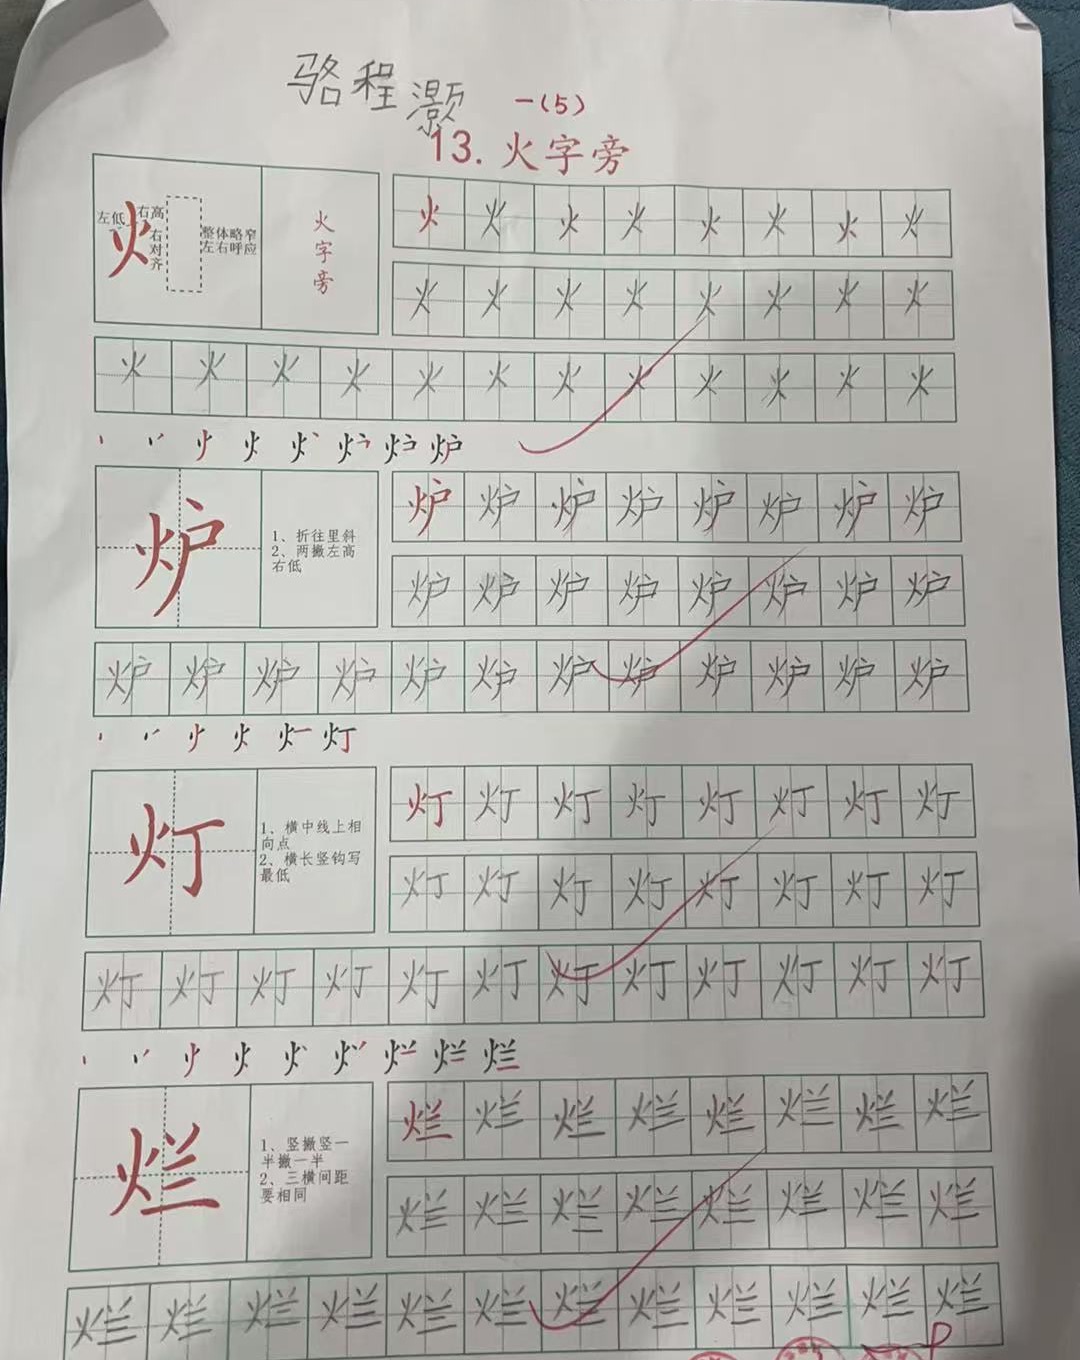 骆程灏
一(5)
13. 火字旁
左低 右高
右对齐
整体略窄
左右呼应
火字旁
火 火 火 火 火 火 火 火
火 火 火 火 火 火 火 火
火 火 火 火 火 火 火 火 火 火 火 火
炉
炉
1、折往里斜
2、两撇左高
右低
炉 炉 炉 炉 炉 炉 炉 炉
炉 炉 炉 炉 炉 炉 炉 炉
炉 炉 炉 炉 炉 炉 炉 炉 炉 炉 炉 炉
灯
灯
1、横中线上相
向点
2、横长竖钩写
最低
灯 灯 灯 灯 灯 灯 灯 灯
灯 灯 灯 灯 灯 灯 灯 灯
灯 灯 灯 灯 灯 灯 灯 灯 灯 灯 灯 灯
烂
烂
1、竖撇竖一
半撇一半
2、三横间距
要相同
烂 烂 烂 烂 烂 烂 烂 烂
烂 烂 烂 烂 烂 烂 烂 烂
烂 烂 烂 烂 烂 烂 烂 烂 烂 烂 烂 烂